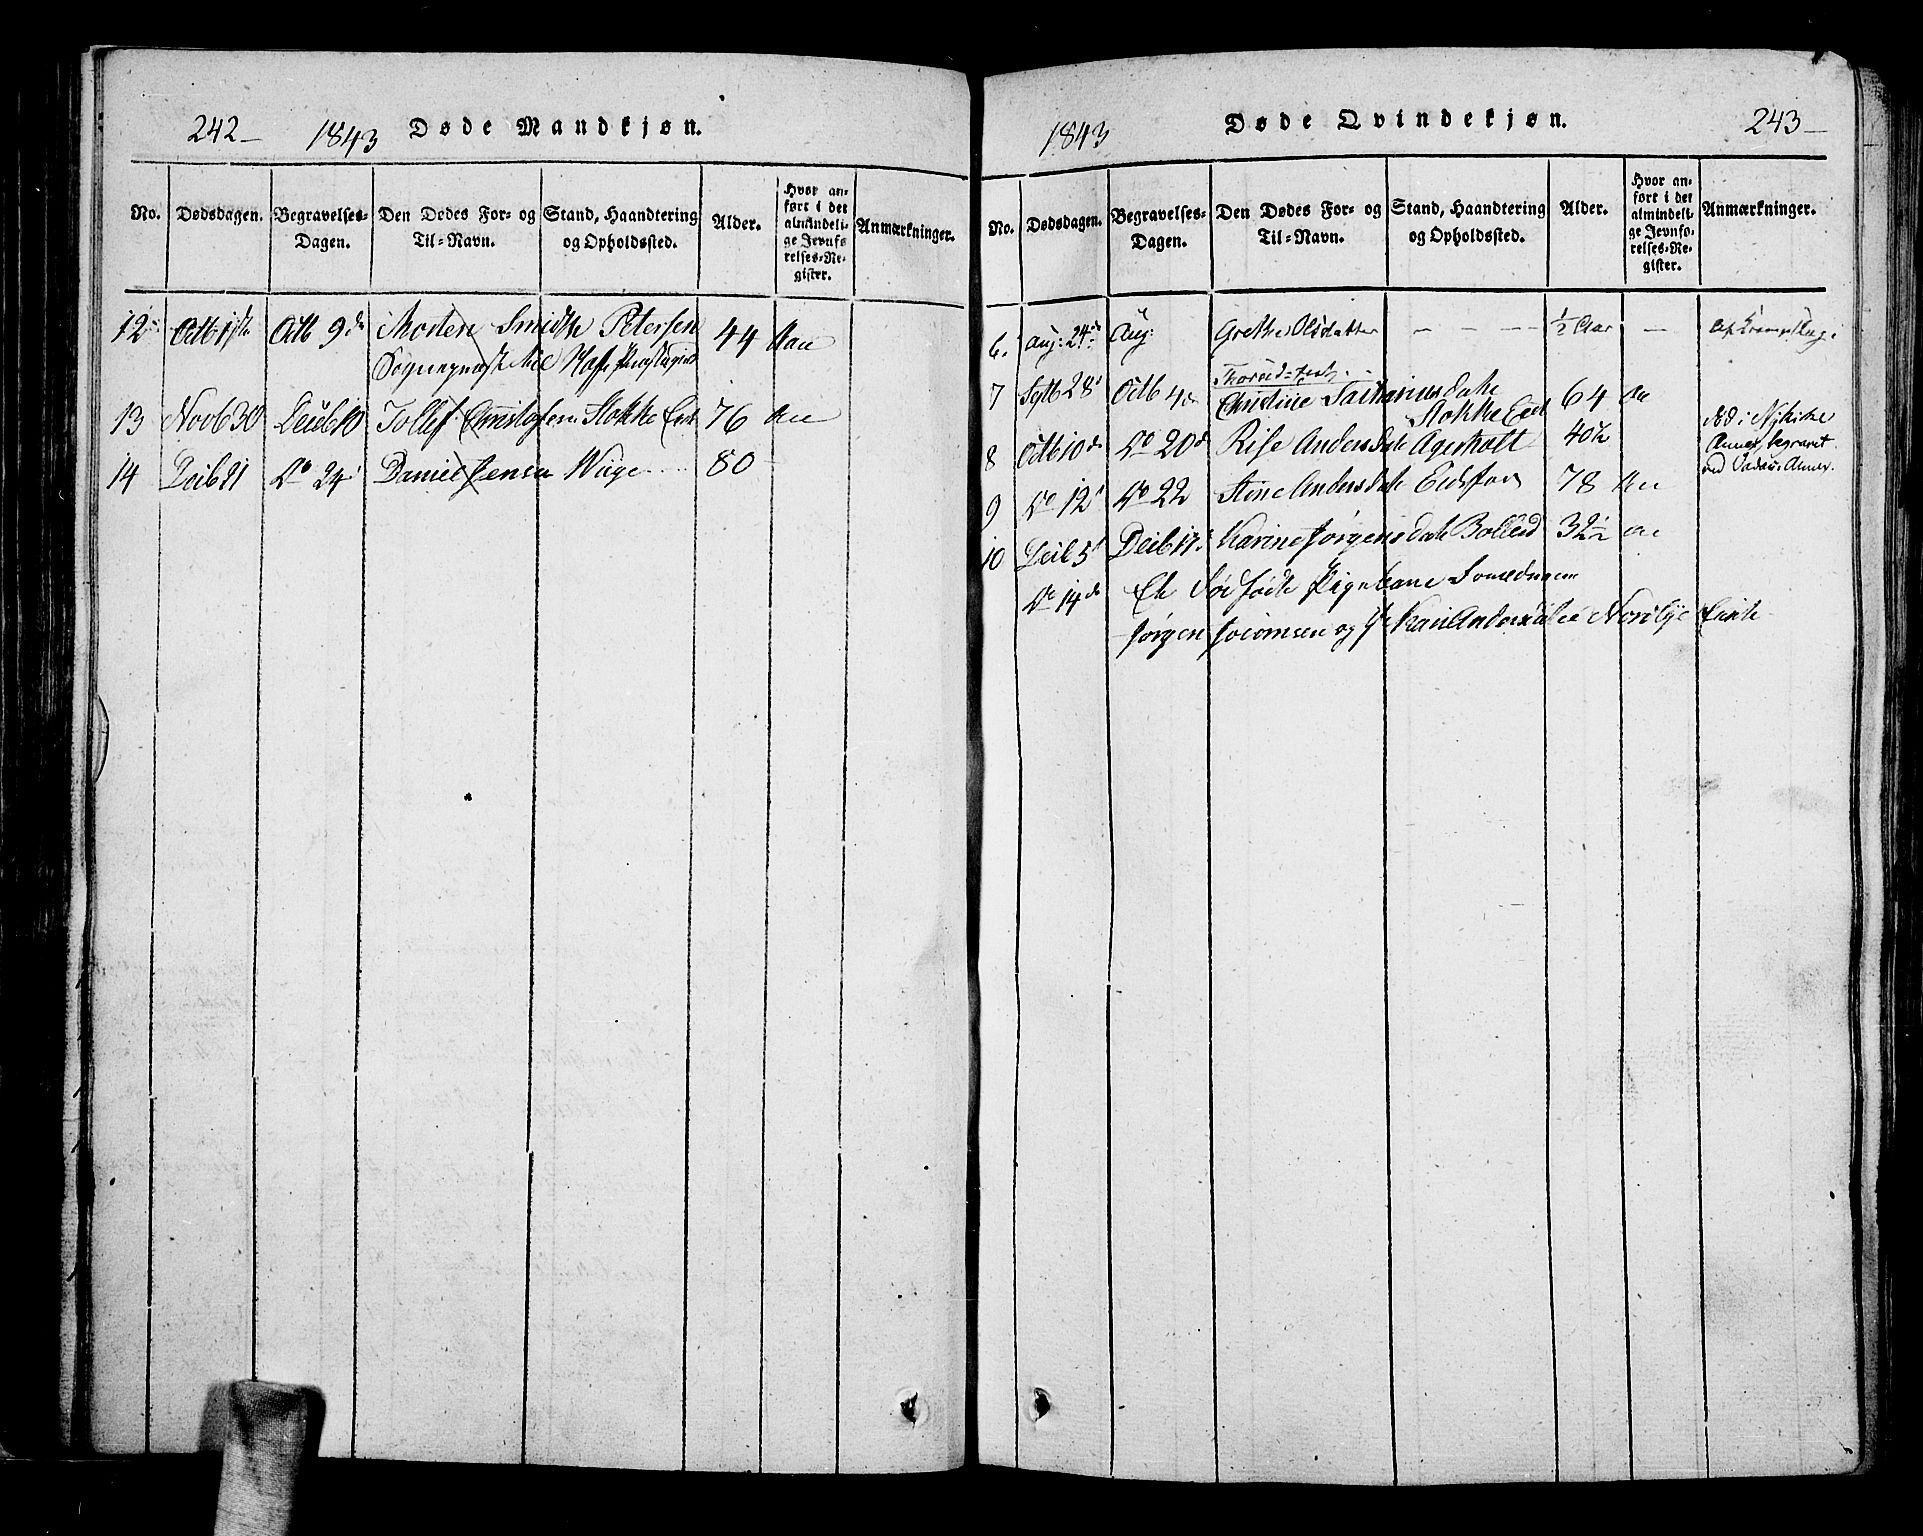 242
1843 Døde Mandkjøn.
No. Dødsdagen. Begravelses-Dagen. Den Dødes For- og Til-Navn. Stand, Haandtering og Opholdssted. Alder. Hvor anført i det almindelige Jevnførelses-Register. Anmærkninger.
12 Octb 1ste Octb 9de Morten Smidth Petersen 44 Aar
Sognepræst til
13 Novb 30 Decb 10 Tollef Christofersen Stokke Eiet 76 Aar
14 Decb 21 Do 24 Daniel Jensen Wiige 80
1843 Døde Qvindekjøn. 243
No. Dødsdagen. Begravelses-Dagen. Den Dødes For- og Til-Navn. Stand, Haandtering og Opholdssted. Alder. Hvor anført i det almindelige Jevnførelses-Register. Anmærkninger.
6. Aug: 24de Aug: Grethe Olsdatter — — — — 1/2 Aar —
7 Septb 28 Octb 4de Christine Zachariasdatr 64
Stokke Eiet
8 Octb 10de Do 20de Andersdatr Agerholt 40 1/2
Død i Nykirke
Annex, begravet
ved Annex.
9 Do 12 Do 22 Stine Andersdatr Eidsfos 78
10 Decb 5 Decb 17 Karine Jørgensdatr 32 1/2
Do 14de Et Dødfødt Pigebarn
Jørgen og Andersdatter